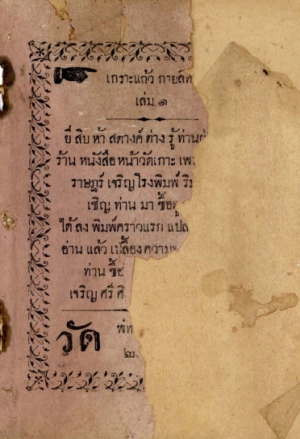 เกราะแก้ว กายสิท
เล่ม ๑
ยี่ สิบ ห้า สตางค์ ต่าง รู้ ท่าน
ร้าน หนังสือ หน้าวัดเกาะ เพ
ราษฎร์ เจริญ โรงพิมพ์ ริม
เชิญ ท่าน มา ซื้อ
ได้ ลง พิมพ์ คราวแรก แปล
อ่าน แล้ว เปลื้อง ความ
ท่าน ซื้อ
เจริญ ศรี ศิ
วัด
๒